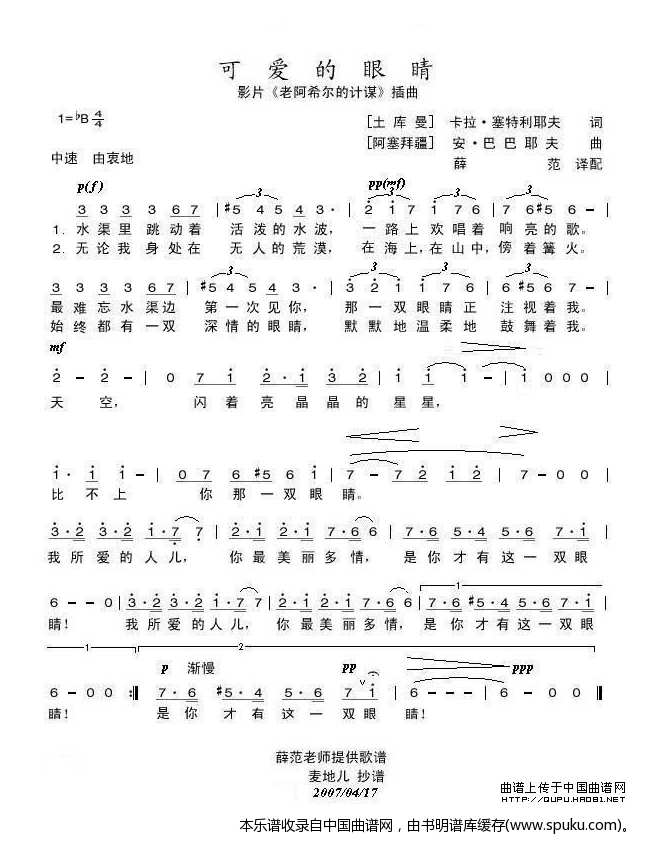 可爱的眼睛
影片《老阿希尔的计谋》插曲
1=♭B 4/4
[土库曼] 卡拉·塞特利耶夫 词
[阿塞拜疆] 安·巴巴耶夫 曲
中速 由衷地
薛范 译配
p(f) pp(mf)
3 3 3 3 6 7 | #5 4 5 4 3 · | 2 1 7 1 7 6 | 7 6 #5 6 - |
1. 水渠里跳动着 活泼的水波， 一路上欢唱着 响亮的歌。
2. 无论我身处在 无人的荒漠， 在海上，在山中，傍着篝火。
3 3 3 3 6 7 | #5 4 5 4 3 · | 3 2 1 7 1 7 6 | 6 #5 4 5 6 - |
最难忘水渠边 第一次见你， 那一双眼睛正 注视着我。
始终都有一双 深情的眼睛， 默默地温柔地 鼓舞着我。
mf
2 - 2 - | 0 7 1 2 · 1 3 2 | 1 1 1 - | 1 0 0 0 |
天空， 闪着亮晶晶的星星，
1 · 1 1 - | 0 7 6 #5 6 1 | 7 - 7 2 1 2 | 7 - 0 0 |
比不上 你那一双眼睛。
3 · 2 3 · 2 1 · 7 7 | 2 · 1 2 · 1 7 · 6 6 | 7 · 6 5 · 4 5 · 6 7 · 1 |
我所爱的人儿， 你最美丽多情， 是你才有这一双眼
1
6 - - 0 | 3 · 2 3 · 2 1 · 7 7 | 2 · 1 2 · 1 7 · 6 6 | 7 · 6 #5 · 4 5 · 6 7 · 1 |
睛！ 我所爱的人儿，你最美丽多情，是你才有这一双眼
1 2
p 渐慢 pp ppp
6 - 0 0 :| 7 · 6 #5 · 4 5 · 6 7 1 | 6 - - - | 6 - 0 0 ‖
睛！ 是你才有这一双眼睛！
薛范老师提供歌谱
麦地儿 抄谱
2007/04/17
曲谱上传于中国曲谱网
HTTP://QUPU.HAO81.NET
本乐谱收录自中国曲谱网，由书明谱库缓存(www.spuku.com)。